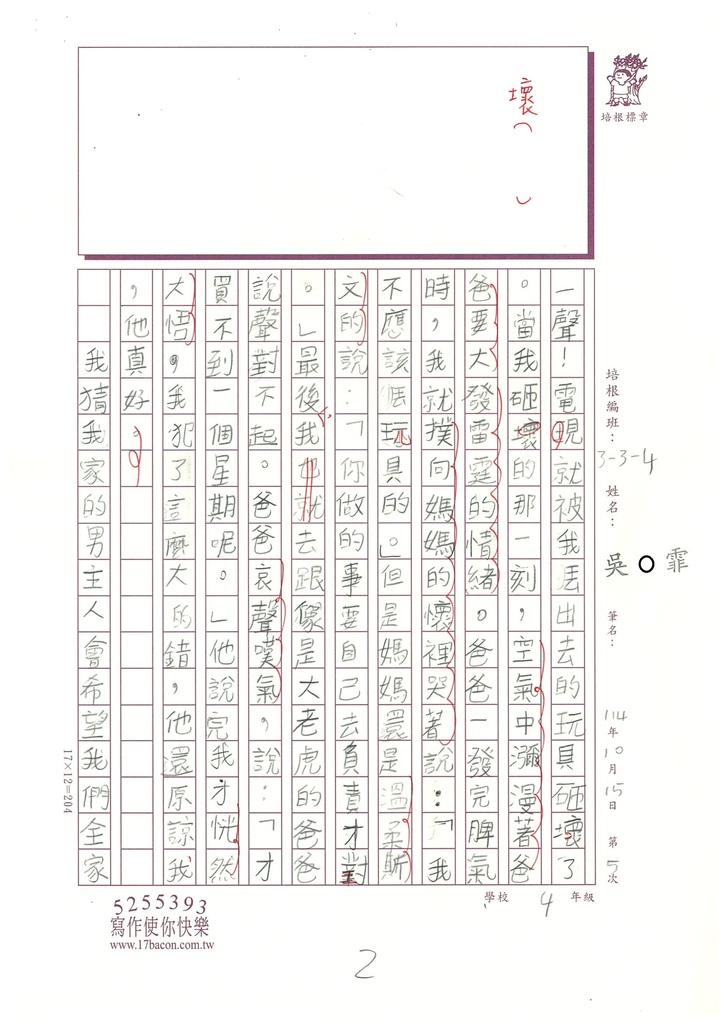 壞（ ）
培根標章
培根編班：3-3-4
姓名：吳○霏
筆名：
114年10月15日 第5次
學校 4年級
一聲！電現就被我丟出去的玩具砸壞了
。當我砸壞的那一刻，空氣中瀰漫著爸
爸要大發雷霆的情緒。爸爸一發完脾氣
時，我就撲向媽媽的懷裡哭著說：「我
不應該丟玩具的。」但是媽媽還是溫柔斯
文的說：「你做的事要自己去負責才對
。」最後我也就去跟像是大老虎的爸爸
說聲對不起。爸爸哀聲嘆氣，說：「才
買不到一個星期呢。」他說完我才恍然
大悟，我犯了這麼大的錯，他還原諒我
，他真好。
我猜我家的男主人會希望我們全家
17×12=204
5255393
寫作使你快樂
www.17bacon.com.tw
2